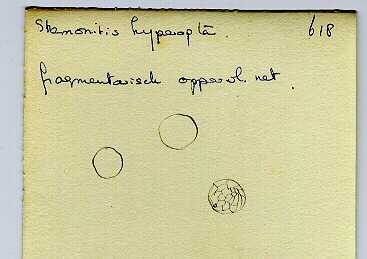 Stemonitis hyperopta. 618
fragmentarisch oppervl. net.